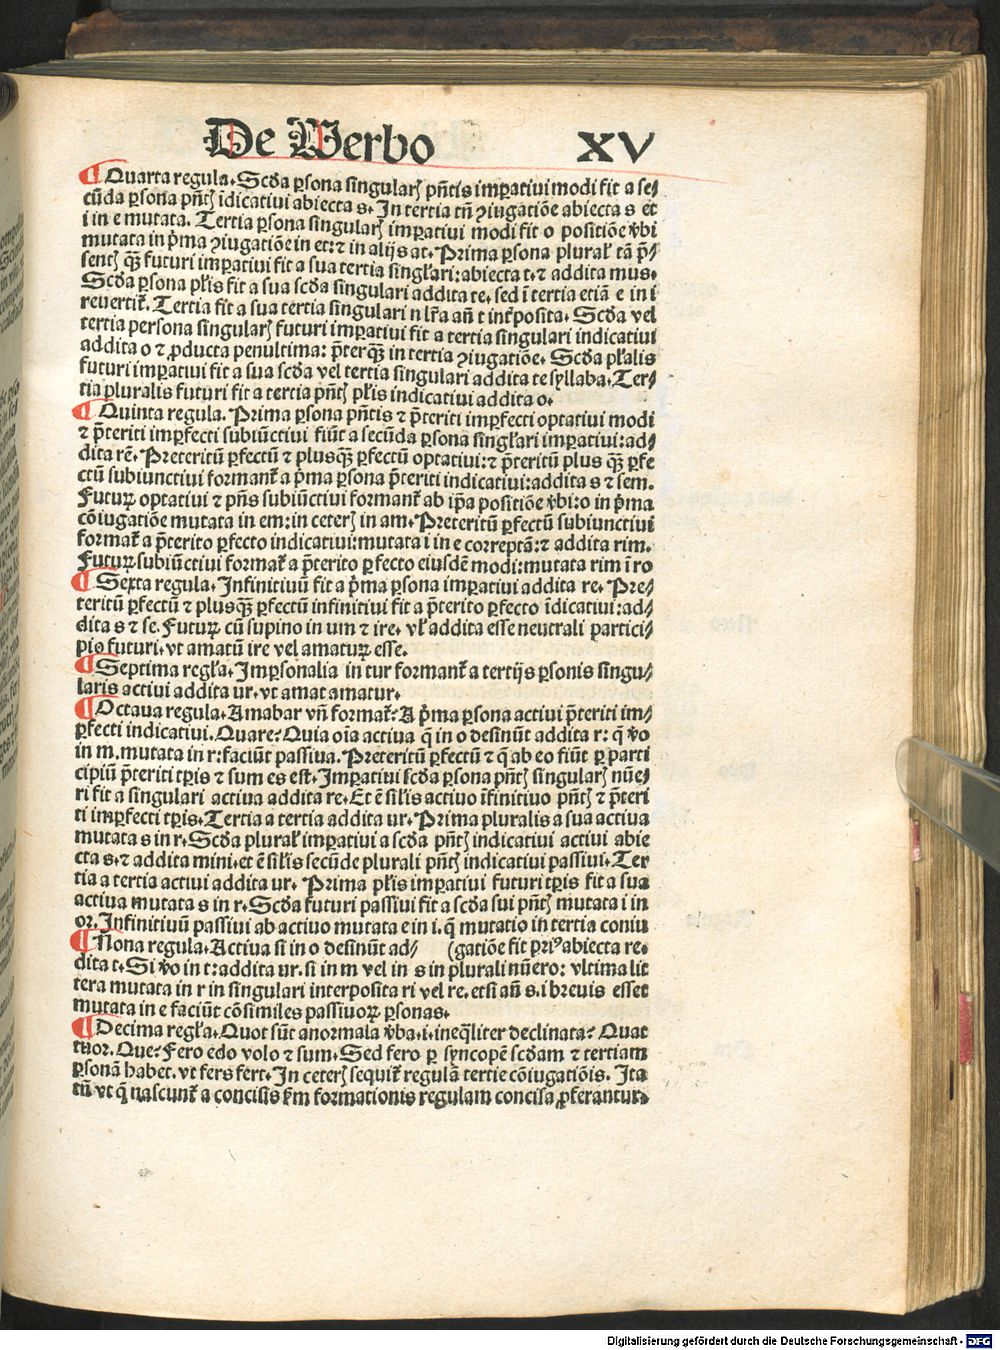 De Verbo XV
¶ Quarta regula. Scďa ꝑsona singularꝭ pn̄tis imꝑatiui modi fit a se⸗
cūda ꝑsona pn̄tꝭ īdicatiui abiecta s. In tertia tn̄ ꝯiugatiōe abiecta s et
i in e mutata. Tertia ꝑsona singularꝭ imꝑatiui modi fit o positiōe v̄bi
mutata in p̄ma ꝯiugatiōe in et: ⁊ in alijs at. Prima ꝑsona plural̄ tā p̄⸗
sentꝭ qꝫ̄ futuri imꝑatiui fit a sua tertia singl̄ari: abiecta t. ⁊ addita mus.
Scďa ꝑsona pl̄is fit a sua scďa singulari addita te. sed ī tertia etiā e in i
reuertit᷑. Tertia fit a sua tertia singulari n lr̄a an̄ t int̄ꝑosita. Scďa vel
tertia persona singularꝭ futuri imꝑatiui fit a tertia singulari indicatiui
addita o ⁊ ꝓducta penultima: p̄terqꝫ̄ in tertia ꝯiugatiōe. Scďa pl̄alis
futuri imꝑatiui fit a sua scďa vel tertia singulari addita te syllaba. Ter⸗
tia pluralis futuri fit a tertia pn̄tꝭ pl̄is indicatiui addita o.
¶ Quinta regula. Prima ꝑsona pn̄tis ⁊ p̄teriti imꝑfecti optatiui modi
⁊ p̄teriti imꝑfecti subiūctiui fiūt a secūda ꝑsona singl̄ari imꝑatiui: ad⸗
dita rē. Preteritū ꝑfectū ⁊ plusqꝫ̄ ꝑfectū optatiui: ⁊ p̄teritū plus qꝫ̄ ꝑfe
ctū subiunctiui formant᷑ a p̄ma ꝑsona p̄teriti indicatiui: addita s ⁊ sem.
Futurꝝ optatiui ⁊ pn̄s subiūctiui formant᷑ ab ip̄a positiōe v̄bi: o in p̄ma
cōiugatiōe mutata in em: in ceterꝭ in am. Preteritū ꝑfectū subiunctiui
format᷑ a p̄terito ꝑfecto indicatiui: mutata i in e correptā: ⁊ addita rim.
Futurꝝ subiūctiui format᷑ a p̄terito ꝑfecto eiusdē modi: mutata rim ī ro
¶ Sexta regula. Infinitiuū fit a p̄ma ꝑsona imꝑatiui addita re. Pre⸗
teritū ꝑfectū ⁊ plusqꝫ̄ ꝑfectū infinitiui fit a p̄terito ꝑfecto īdicatiui: ad⸗
dita s ⁊ se. Futurꝝ cū supino in um ⁊ ire. vl̄ addita esse neutrali partici⸗
pio futuri. vt amatū ire vel amaturꝝ esse.
¶ Septima regl̄a. Imꝑsonalia in tur formant᷑ a tertijs ꝑsonis singu⸗
laris actiui addita ur. vt amat amatur.
¶ Octaua regula. Amabar vn̄ format᷑? A p̄ma ꝑsona actiui p̄teriti im⸗
ꝑfecti indicatiui. Quare? Quia oīa actiua q̄ in o desinūt addita r: q̄ v̄o
in m. mutata in r: faciūt passiua. Preteritū ꝑfectū ⁊ q̄ ab eo fiūt ꝑ parti
cipiū p̄teriti tꝑis ⁊ sum es est. Imꝑatiui scďa ꝑsona pn̄tꝭ singularꝭ nūe⸗
ri fit a singulari actiua addita re. Et ē sil̄is actiuo īfinitiuo pn̄tꝭ ⁊ p̄teri
ti imꝑfecti tꝑis. Tertia a tertia addita ur. Prima pluralis a sua actiua
mutata s in r. Scďa plural̄ imꝑatiui a scďa pn̄tꝭ indicatiui actiui abie
cta s. ⁊ addita mini. et ē sil̄is secūde plurali pn̄tꝭ indicatiui passiui. Ter
tia a tertia actiui addita ur. Prima pl̄is imꝑatiui futuri tꝑis fit a sua
actiua mutata s in r. Scďa futuri passiui fit a scďa sui pn̄tꝭ mutata i in
or. Infinitiuū passiui ab actiuo mutata e in i. q̄ mutatio in tertia coniu
¶ Nona regula. Actiua si in o desinūt ad⸗ (gatiōe fit priꝰ abiecta re.
dita t. Si v̄o in t: addita ur. si in m vel in s in plurali nūero: vltima lit
tera mutata in r in singulari interposita ri vel re. etsi an̄ s. i breuis esset
mutata in e faciūt cōsimiles passiuoꝝ ꝑsonas.
¶ Decima regl̄a. Quot sūt anormala v̄ba. i. ineq̄liter declinata? Quat
tuor. Que? Fero edo volo ⁊ sum. Sed fero ꝑ syncopē scďam ⁊ tertiam
ꝑsonā habet. vt fers fert. In ceterꝭ sequit᷑ regulā tertie cōiugatiōis. Ita
tn̄ vt q̄ nascunt᷑ a concisis ẜm formationis regulam concisa ꝓferantur.
Digitalisierung gefördert durch die Deutsche Forschungsgemeinschaft - DFG